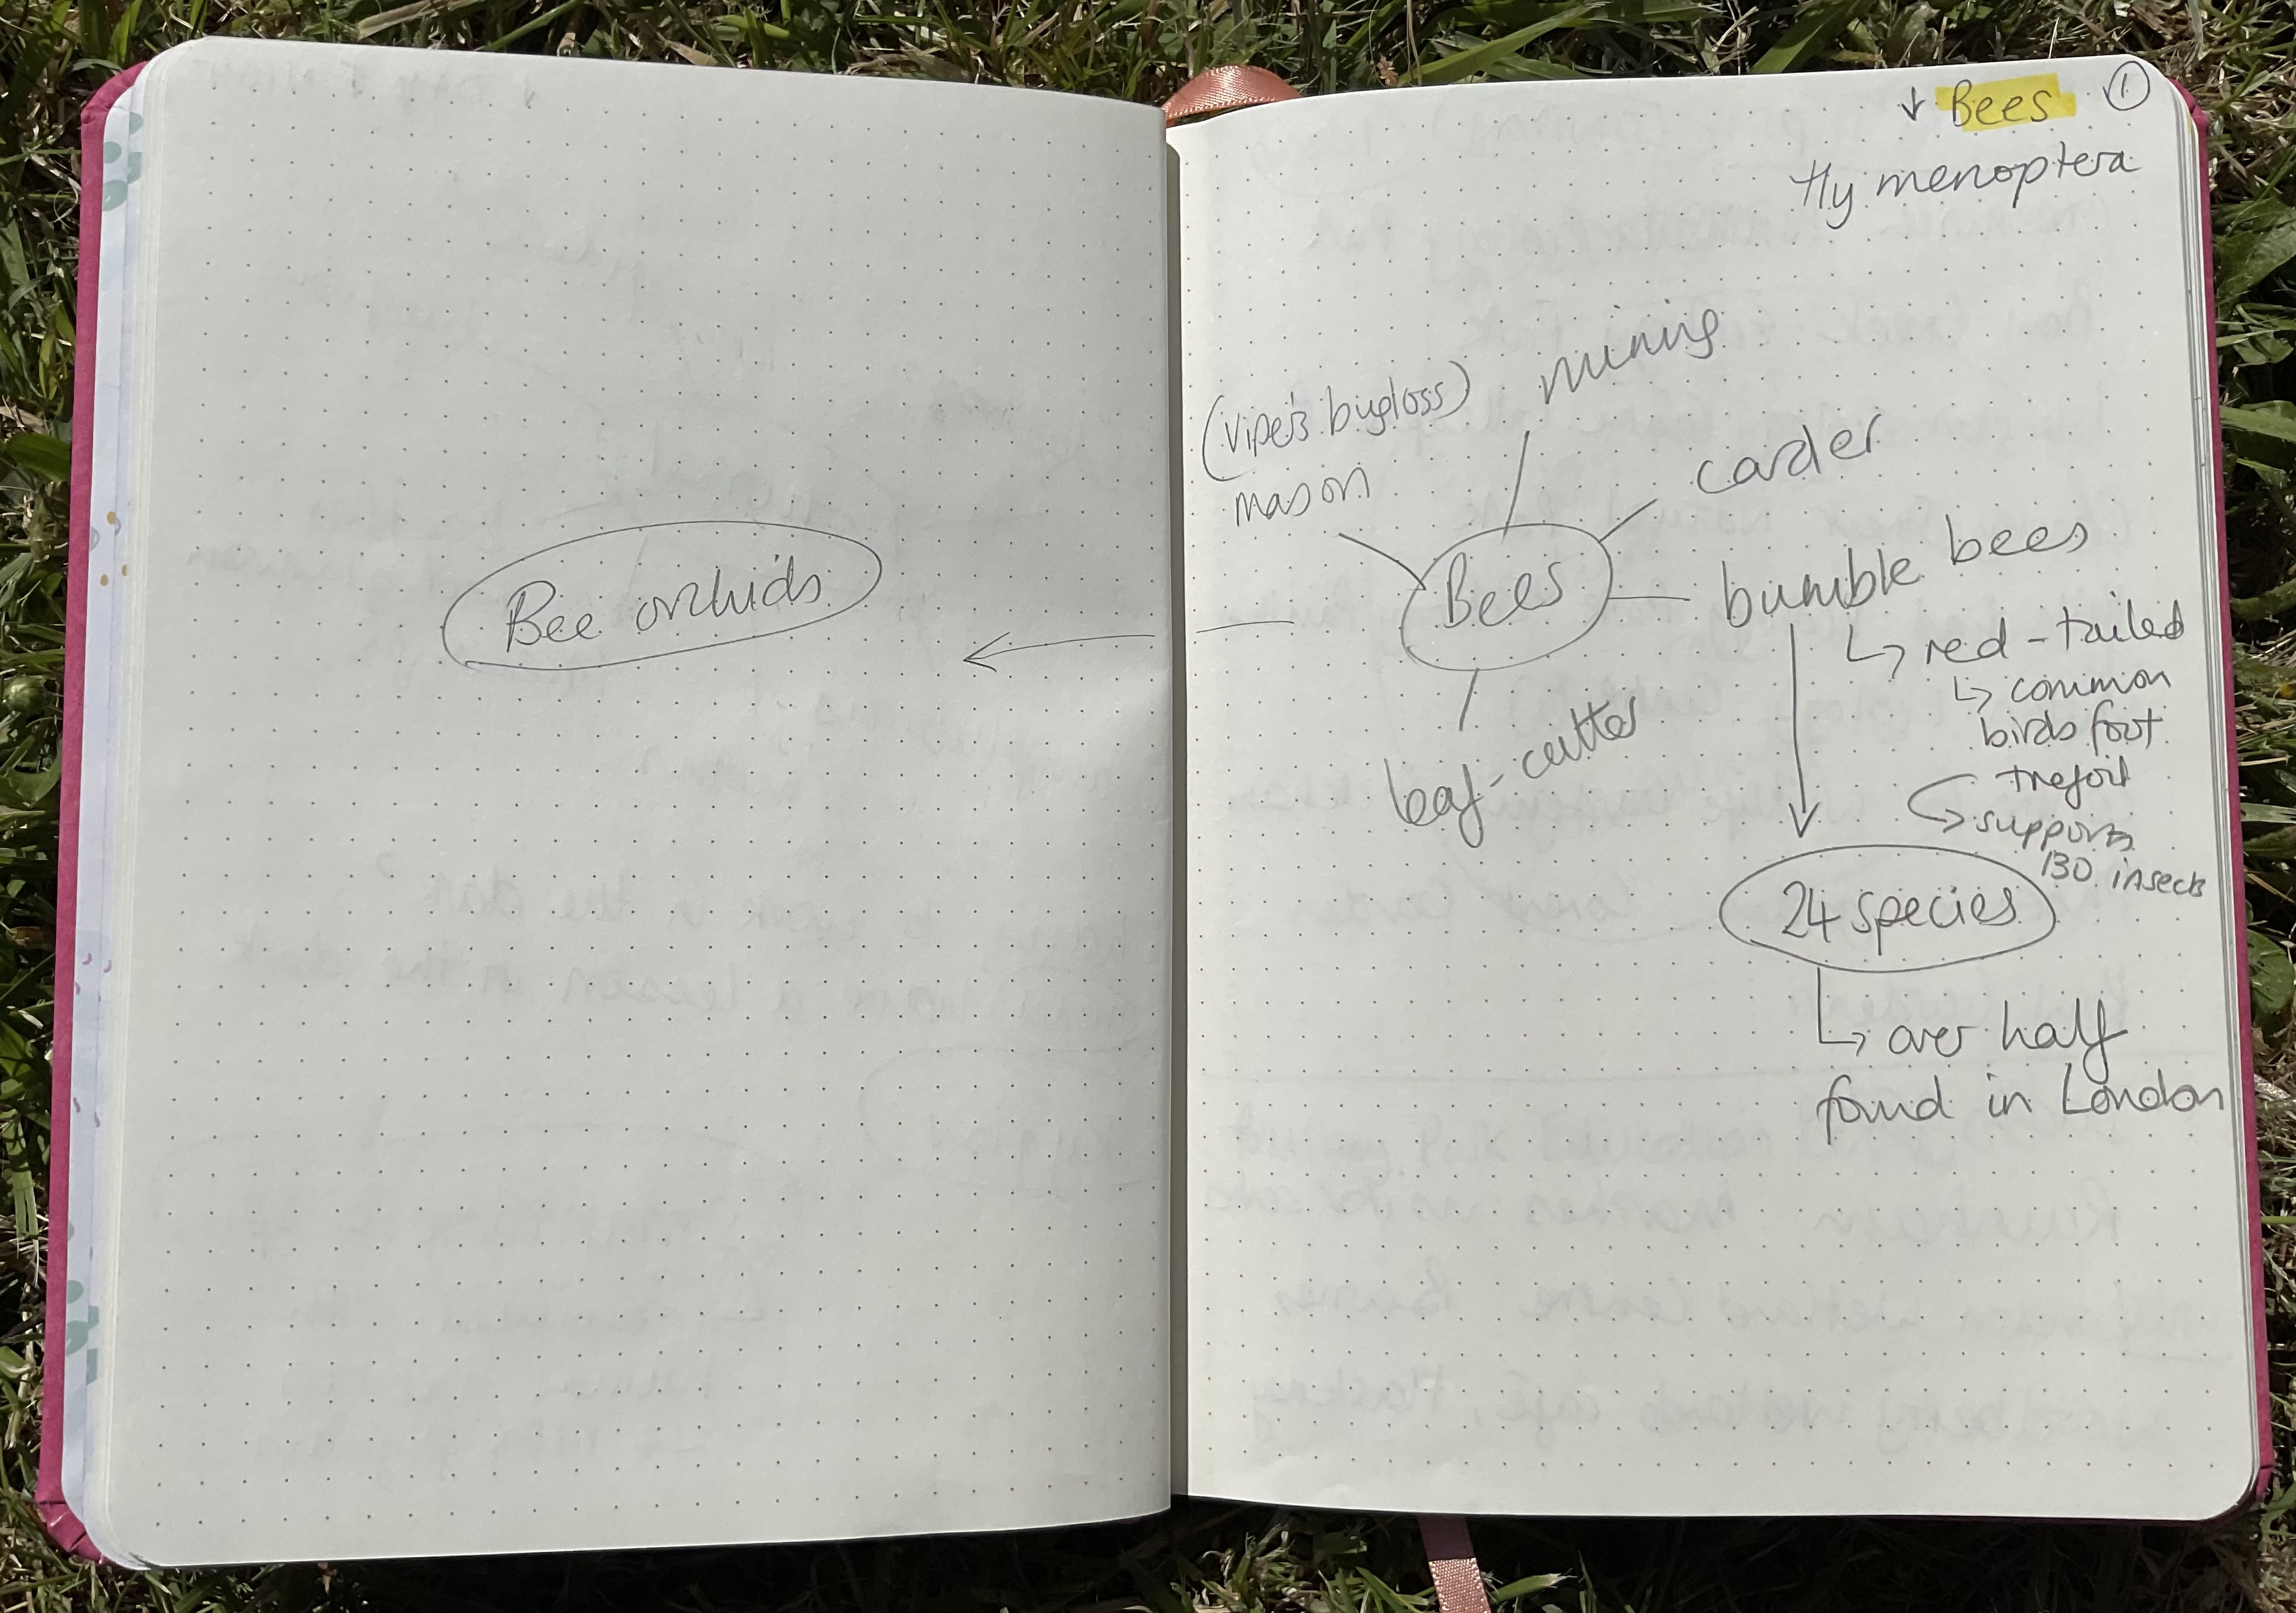 Bee orchids
↓ Bees ①
Hymenoptera
mining
(viper's bugloss)
mason
carder
Bees
bumble bees
↳ red-tailed
↳ common
birds foot
trefoil
↳ supports
130 insects
leaf-cutter
24 species
↳ over half
found in London